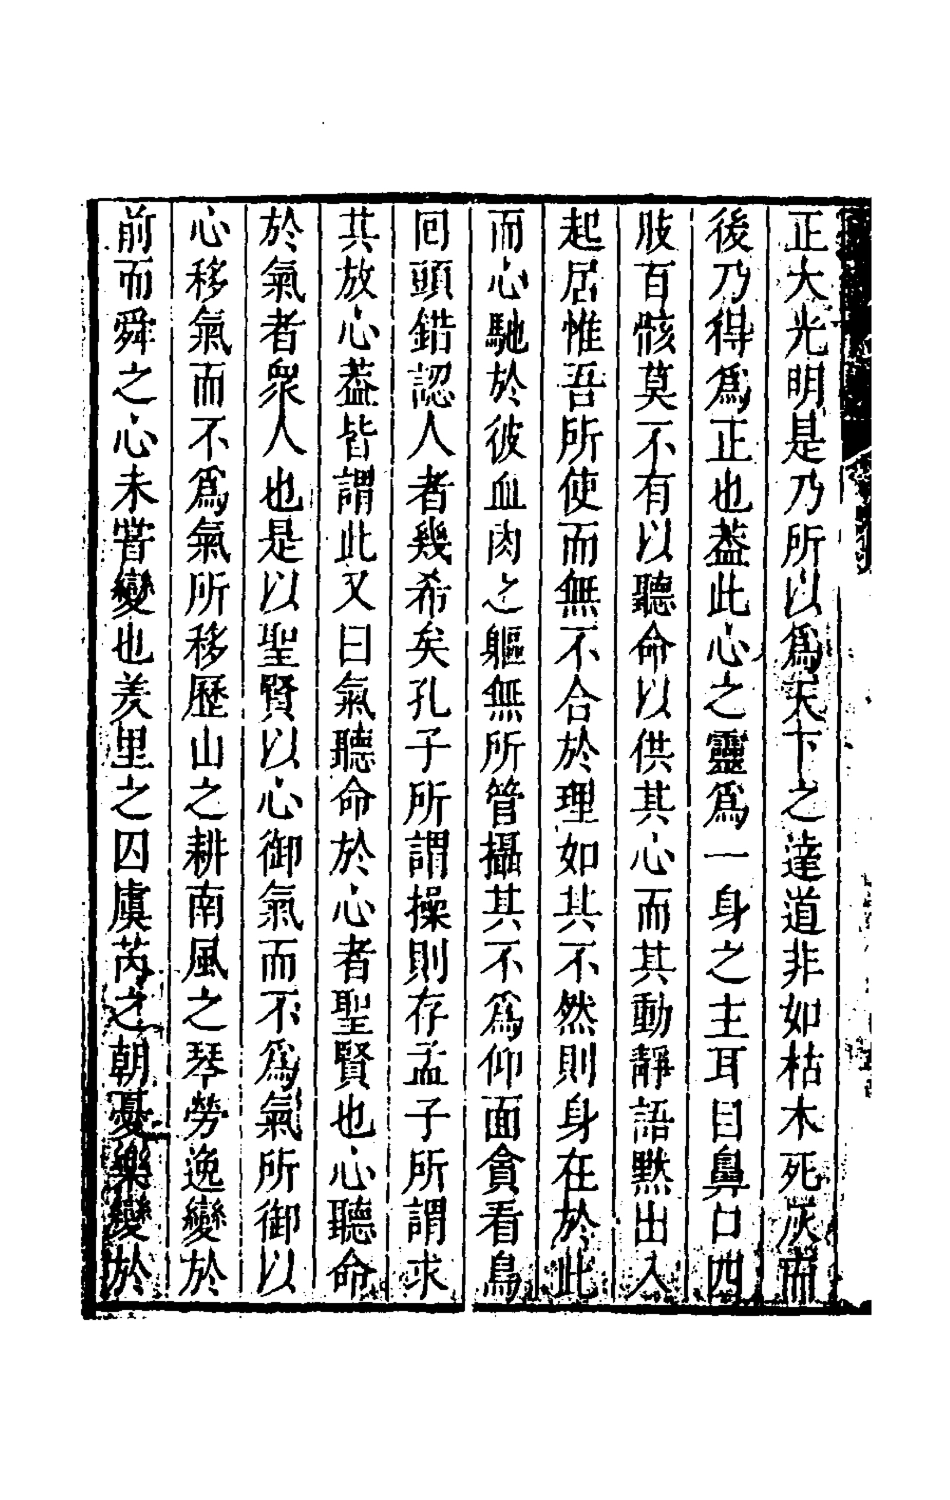 正大光明是乃所以爲天下之達道非如枯木死灰而
後乃得爲正也葢此心之靈爲一身之主耳目鼻口四
肢百骸莫不有以聽命以供其心而其動靜語黙出入
起居惟吾所使而無不合於理如其不然則身在於此
而心馳於彼血肉之軀無所管攝其不爲仰面貪看鳥
囘頭錯認人者幾希矣孔子所謂操則存孟子所謂求
其放心葢皆謂此又曰氣聽命於心者聖賢也心聽命
於氣者衆人也是以聖賢以心御氣而不爲氣所御以
心移氣而不爲氣所移歷山之耕南風之琴勞逸變於
前而舜之心未甞變也羑里之囚虞芮之朝憂樂變於